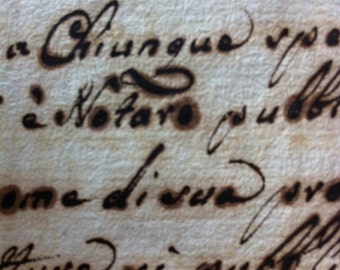 a Chiunque spe
è Notaro pubbl
ome di sua pro